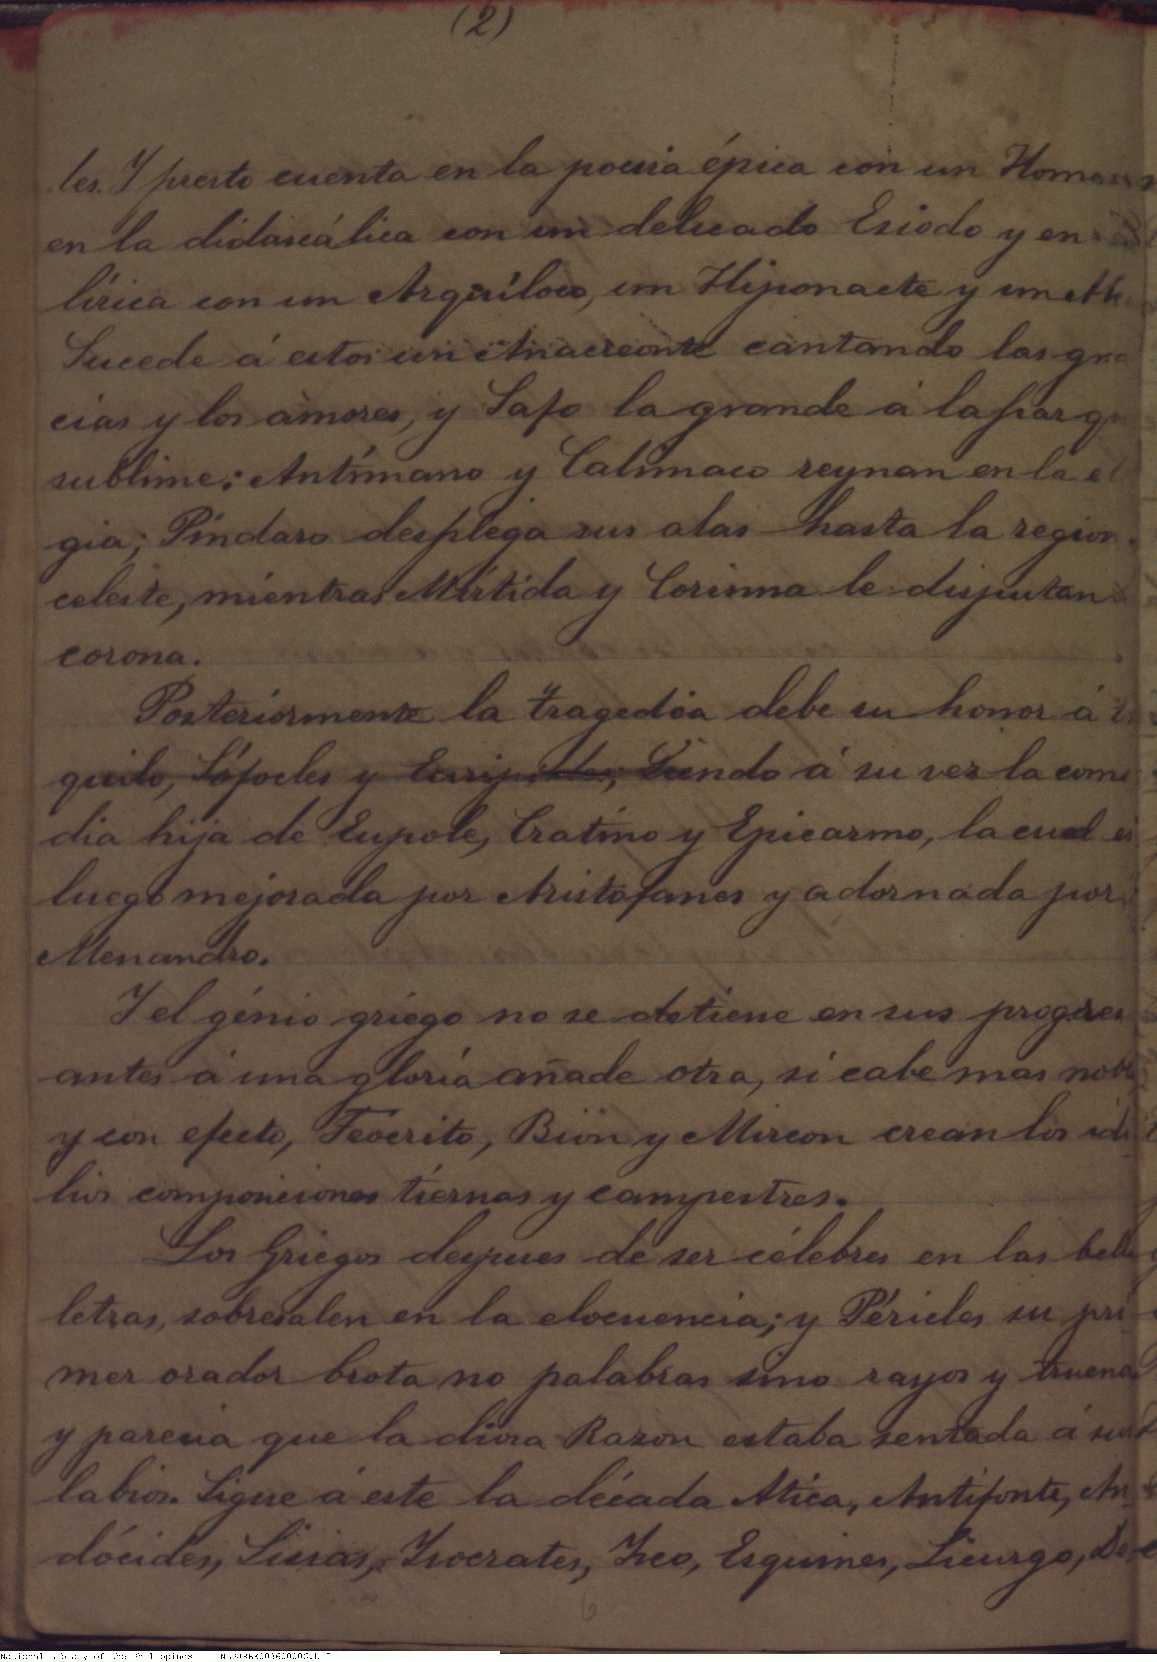 (2)
les. Y presto cuenta en la poesia épica con un
en la didascálica con un delicado Esiodo y en
lírica con un Arquíloco, un Hiponacte y un
Sucede á estos un Anacreonte cantando las gra
cias y los amores, y Safo la grande á la par
sublime; Antímano y Calimaco reynan en la el
gia; Píndaro desplega sus alas hasta la region
celeste, mientras Mírtida y Corinna le disputan
corona.
Posteriormente la tragedia debe su honor á
quilo, Sófocles y Euripides, Siendo á su vez la come
dia hija de Eupole, Cratíno y Epicarmo, la cual es
luego mejorada por Aristófanes y adornada por
Menandro.
Y el génio griego no se detiene en sus progres
antes á una gloria añade otra, si cabe mas nobl
y con efecto, Teócrito, Bion y Mircon crean los idi
lios composiciones tiernas y campestres.
Los Griegos despues de ser célebres en las bella
letras, sobresalen en la elocuencia; y Péricles su pri-
mer orador brota no palabras sino rayos y truenos
y parecia que la diosa Razon estaba sentada á sus
labios. Sigue á este la década Atica, Antifonte, An-
dócides, Lisias, Isocrates, Iseo, Esquines, Licurgo, De-
6
National Library of the Philippines